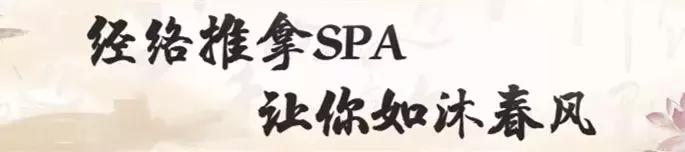 经络推拿SPA
让你如沐春风